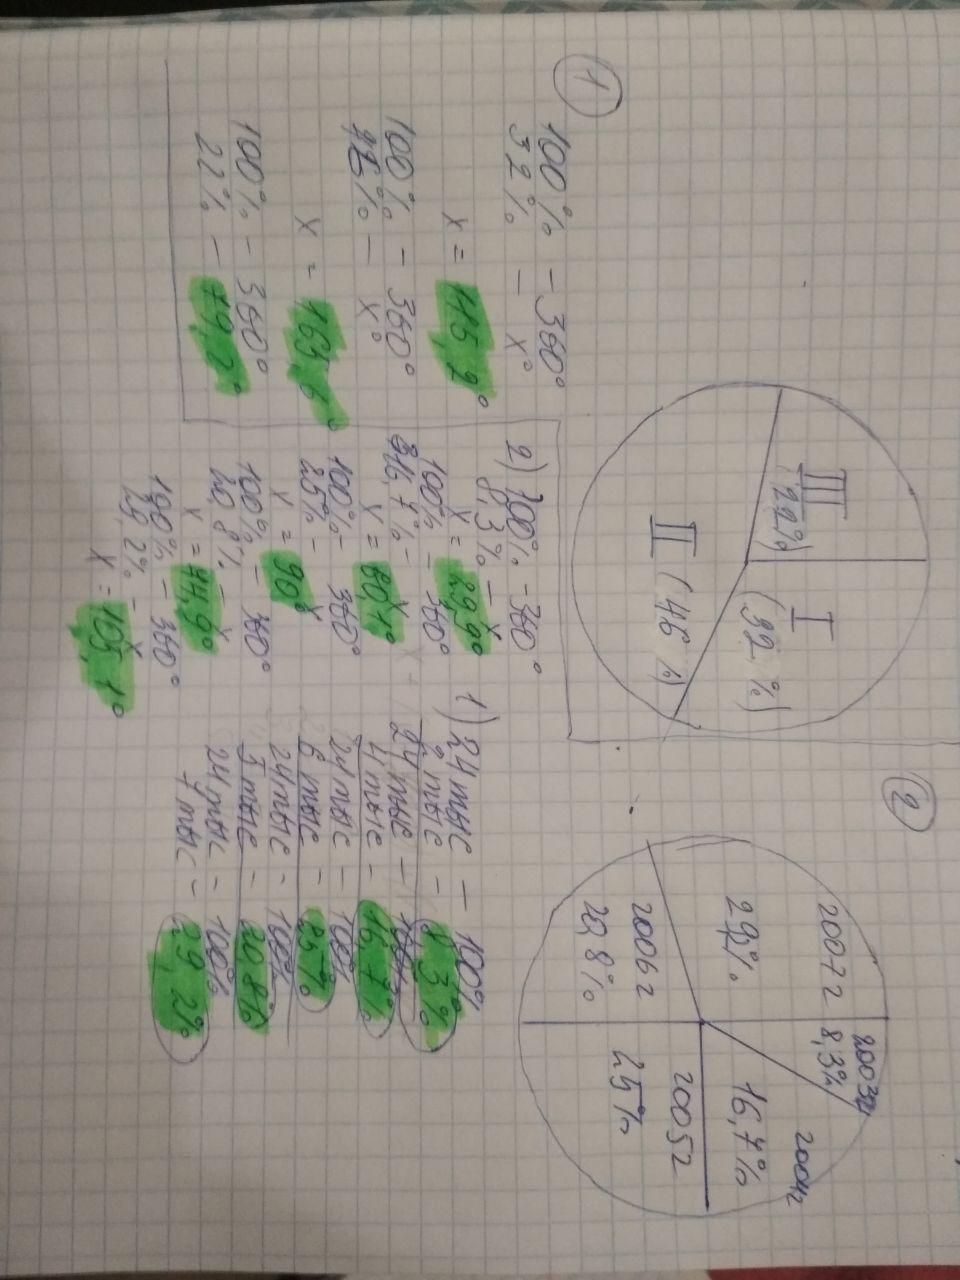 1
100% - 360°
32% - x°
x = 115,2°
100% - 360°
46% - x°
x = 165,6°
100% - 360°
22% - 79,2°
III
(22%)
I
(32%)
II (46%)
2
2007г
29,2%
2003г
8,3%
2004г
16,7%
2006г
20,8%
2005г
25%
1) 24 тыс - 100%
2 тыс - 8,3%
24 тыс - 100%
4 тыс - 16,7%
24 тыс - 100%
6 тыс - 25%
24 тыс - 100%
5 тыс - 20,8%
24 тыс - 100%
7 тыс - 29,2%
2) 100% - 360°
8,3% - x
x = 29,9°
100% - 360°
16,7% - x
x = 60,1°
100% - 360°
25% - x
x = 90°
100% - 360°
20,8% - x
x = 74,9°
100% - 360°
29,2% - x
x = 105,1°